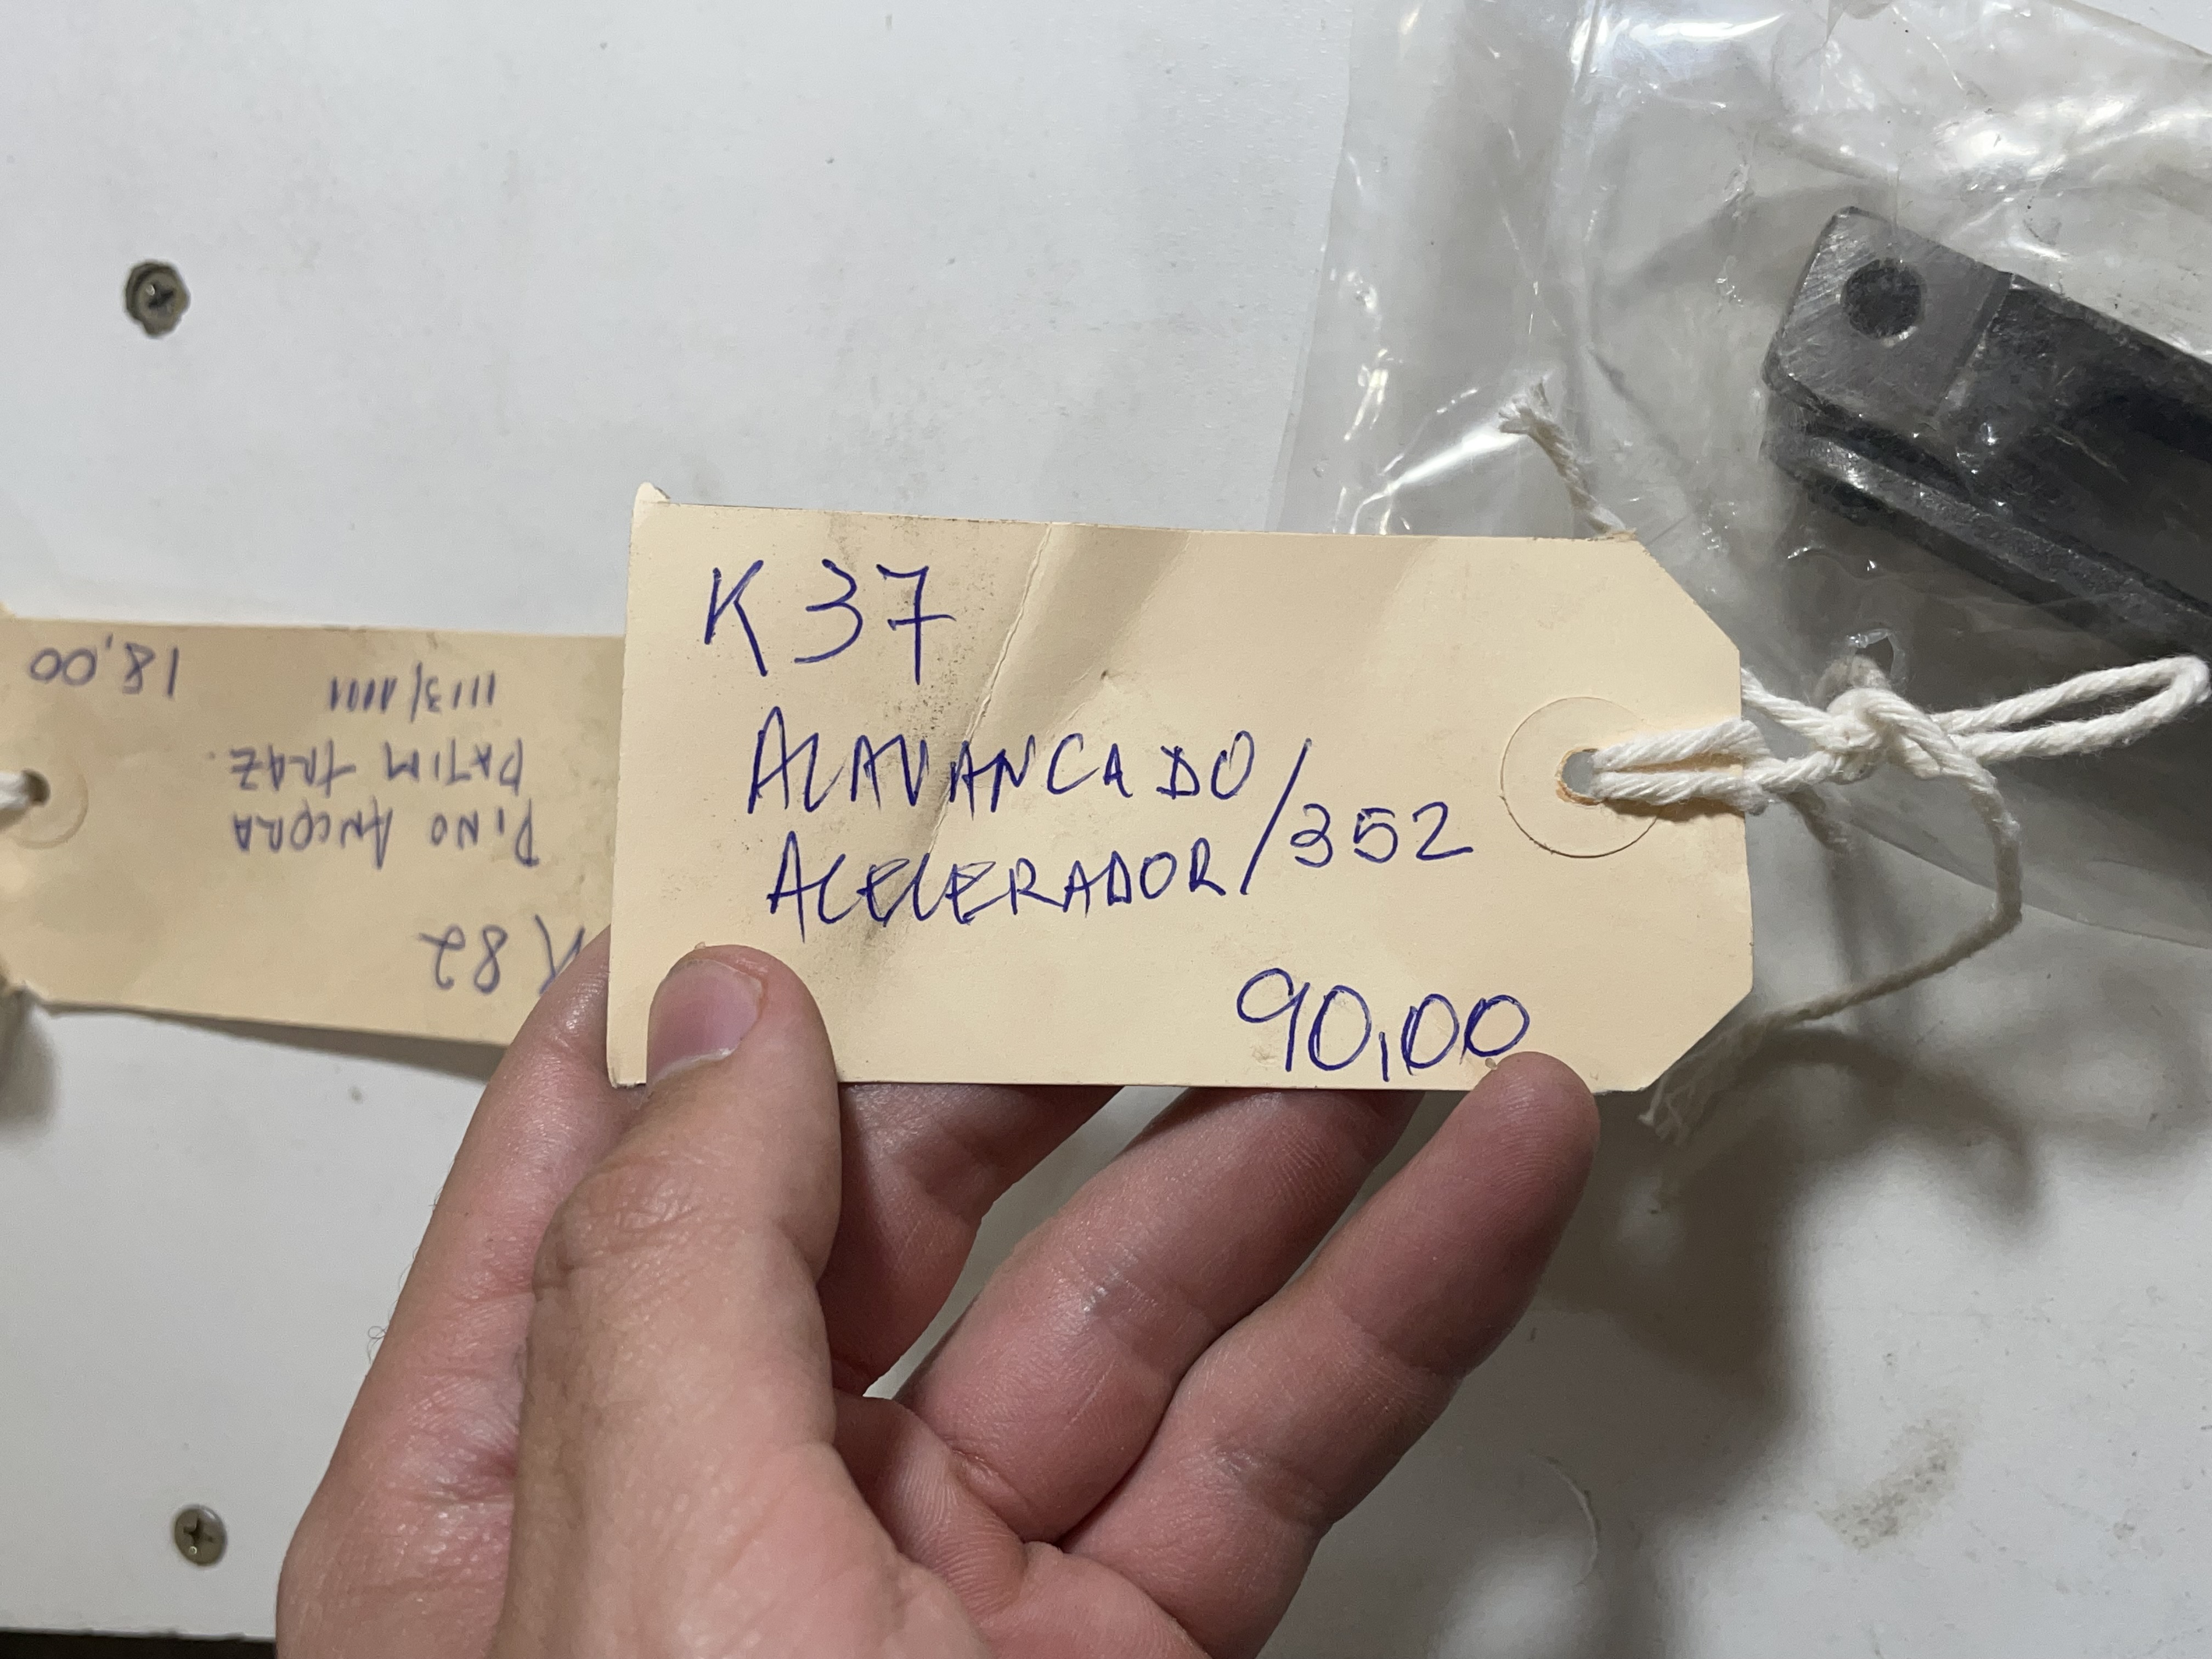 K 82
PINO ANCORA
PATIM TRAZ.
1113/1111
18,00
K 37
ALAVANCA DO
ACELERADOR/352
90,00